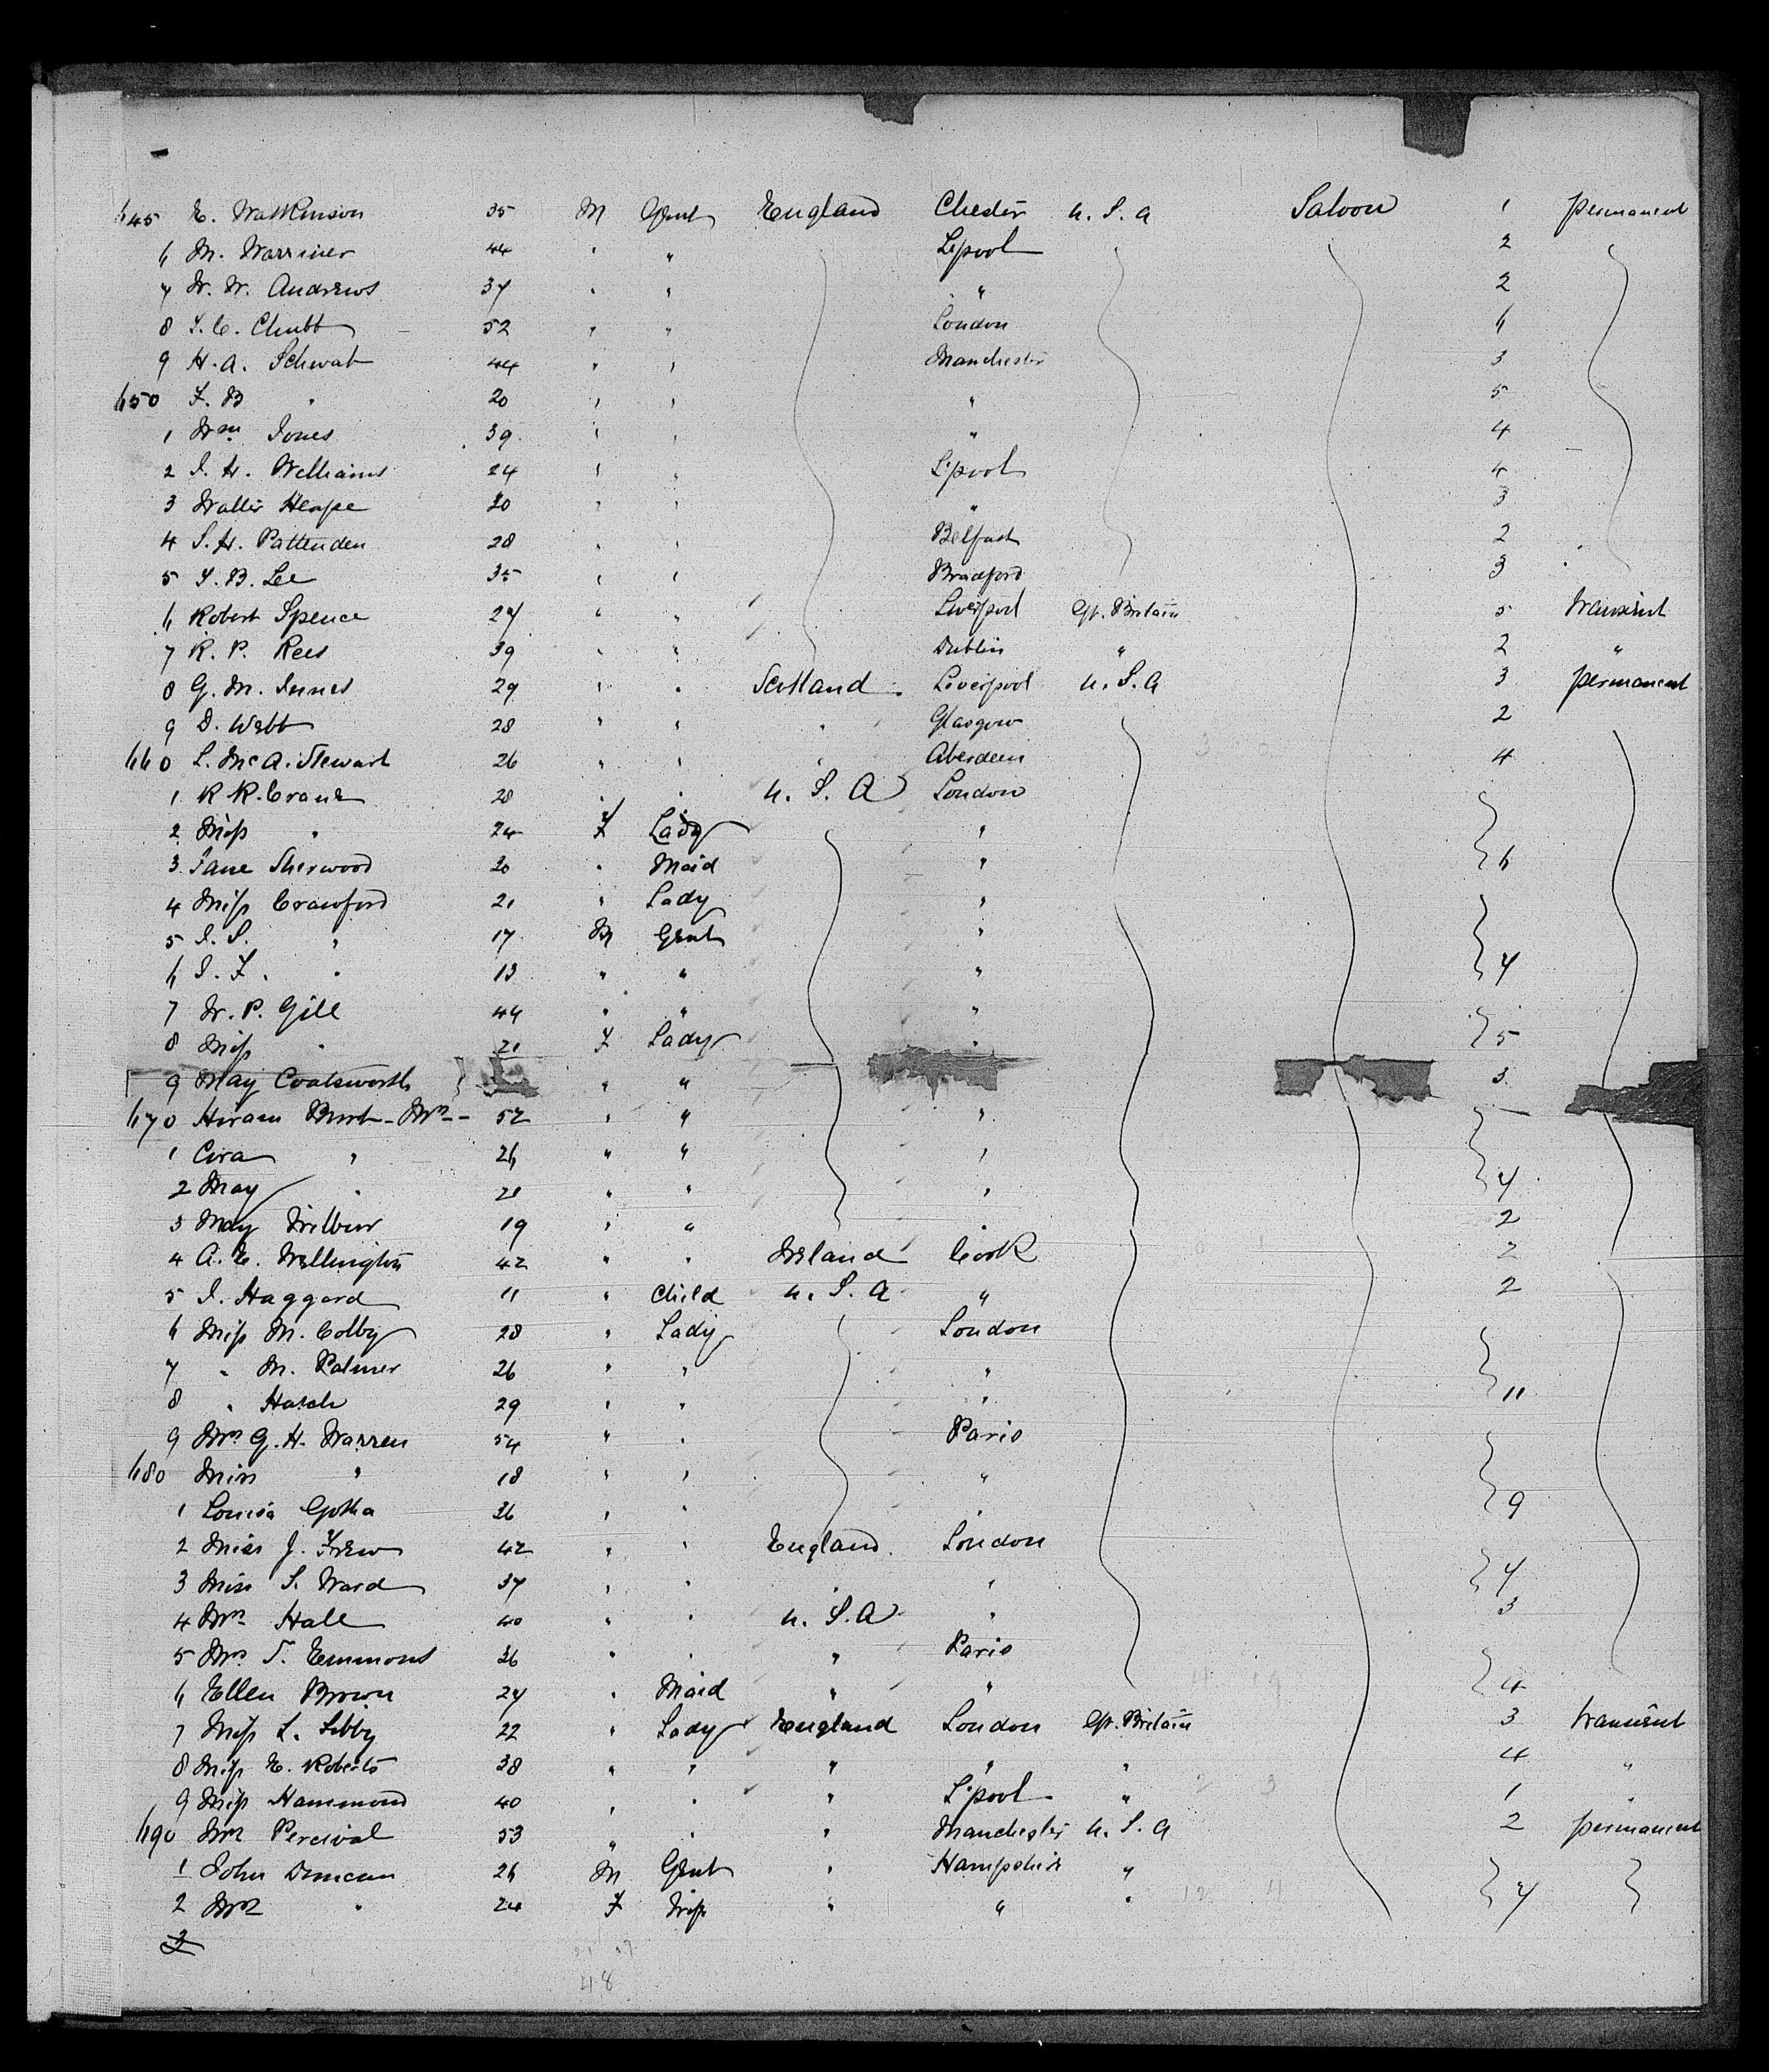 645 E. Watkinson 35 M Gent England Chester U.S.A Saloon 1 permanent
6 M. Warriner 44 " " L'pool 2
7 W. W. Andrews 37 " " " 2
8 T. C. Chubb 52 " " London 6
9 H. A. Schwab 44 " " Manchester 3
650 F. B " 20 " " " 5
1 Wm Jones 39 " " " 4
2 J. H. Williams 24 " " L'pool 4
3 Walter Heape 20 " " " 3
4 S. H. Pattenden 28 " " Belfast 2
5 Y. B. Lee 35 " " Bradford 3
6 Robert Spence 27 " " Liverpool Gt. Britain 5 transient
7 R. P. Rees 39 " " Dublin " 2 "
8 G. M. Innes 29 " " Scotland Liverpool U.S.A 3 permanent
9 D. Webb 28 " " " Glasgow 2
660 L. McA. Stewart 26 " " " Aberdeen 4
1 R R. Crane 28 " " U.S.A London
2 Miss " 24 F Lady "
3 Jane Sherwood 20 " Maid " 6
4 Miss Crawford 21 " Lady "
5 J. S. " 17 M Gent "
6 J. F. " 13 " " " 7
7 W. P. Gill 44 " " "
8 Miss " 21 F Lady " 5
9 May Coatsworth " " 3
670 Hiram Burt - Mrs - 52 " " "
1 Cora " 26 " " "
2 May " 21 " " " 7
3 May Wilbur 19 " " " 2
4 A. E. Wellington 42 " " Ireland Cork 2
5 J. Haggard 11 " Child U.S.A " 2
6 Miss M. Colby 28 " Lady London
7 " M. Palmer 26 " " "
8 " Hatch 29 " " " 11
9 Mrs G. H. Warren 54 " " Paris
680 Miss " 18 " " "
1 Louisa Gotha 36 " " " 9
2 Miss J. Frew 42 " " England London
3 Miss S. Ward 37 " " " " 7
4 Mrs Hall 40 " " U.S.A " 3
5 Mrs T. Emmons 36 " " " Paris
6 Ellen Brown 27 " Maid " " 4
7 Miss L. Libby 22 " Lady England London Gt. Britain 3 transient
8 Miss E. Roberts 38 " " " " " 4 "
9 Miss Hammond 40 " " " L'pool " 1 "
690 Mrs Percival 53 " " " Manchester U.S.A 2 permanent
1 John Duncan 26 M Gent " Hampshire "
2 Mrs " 24 F Wife " " " 7
3
48